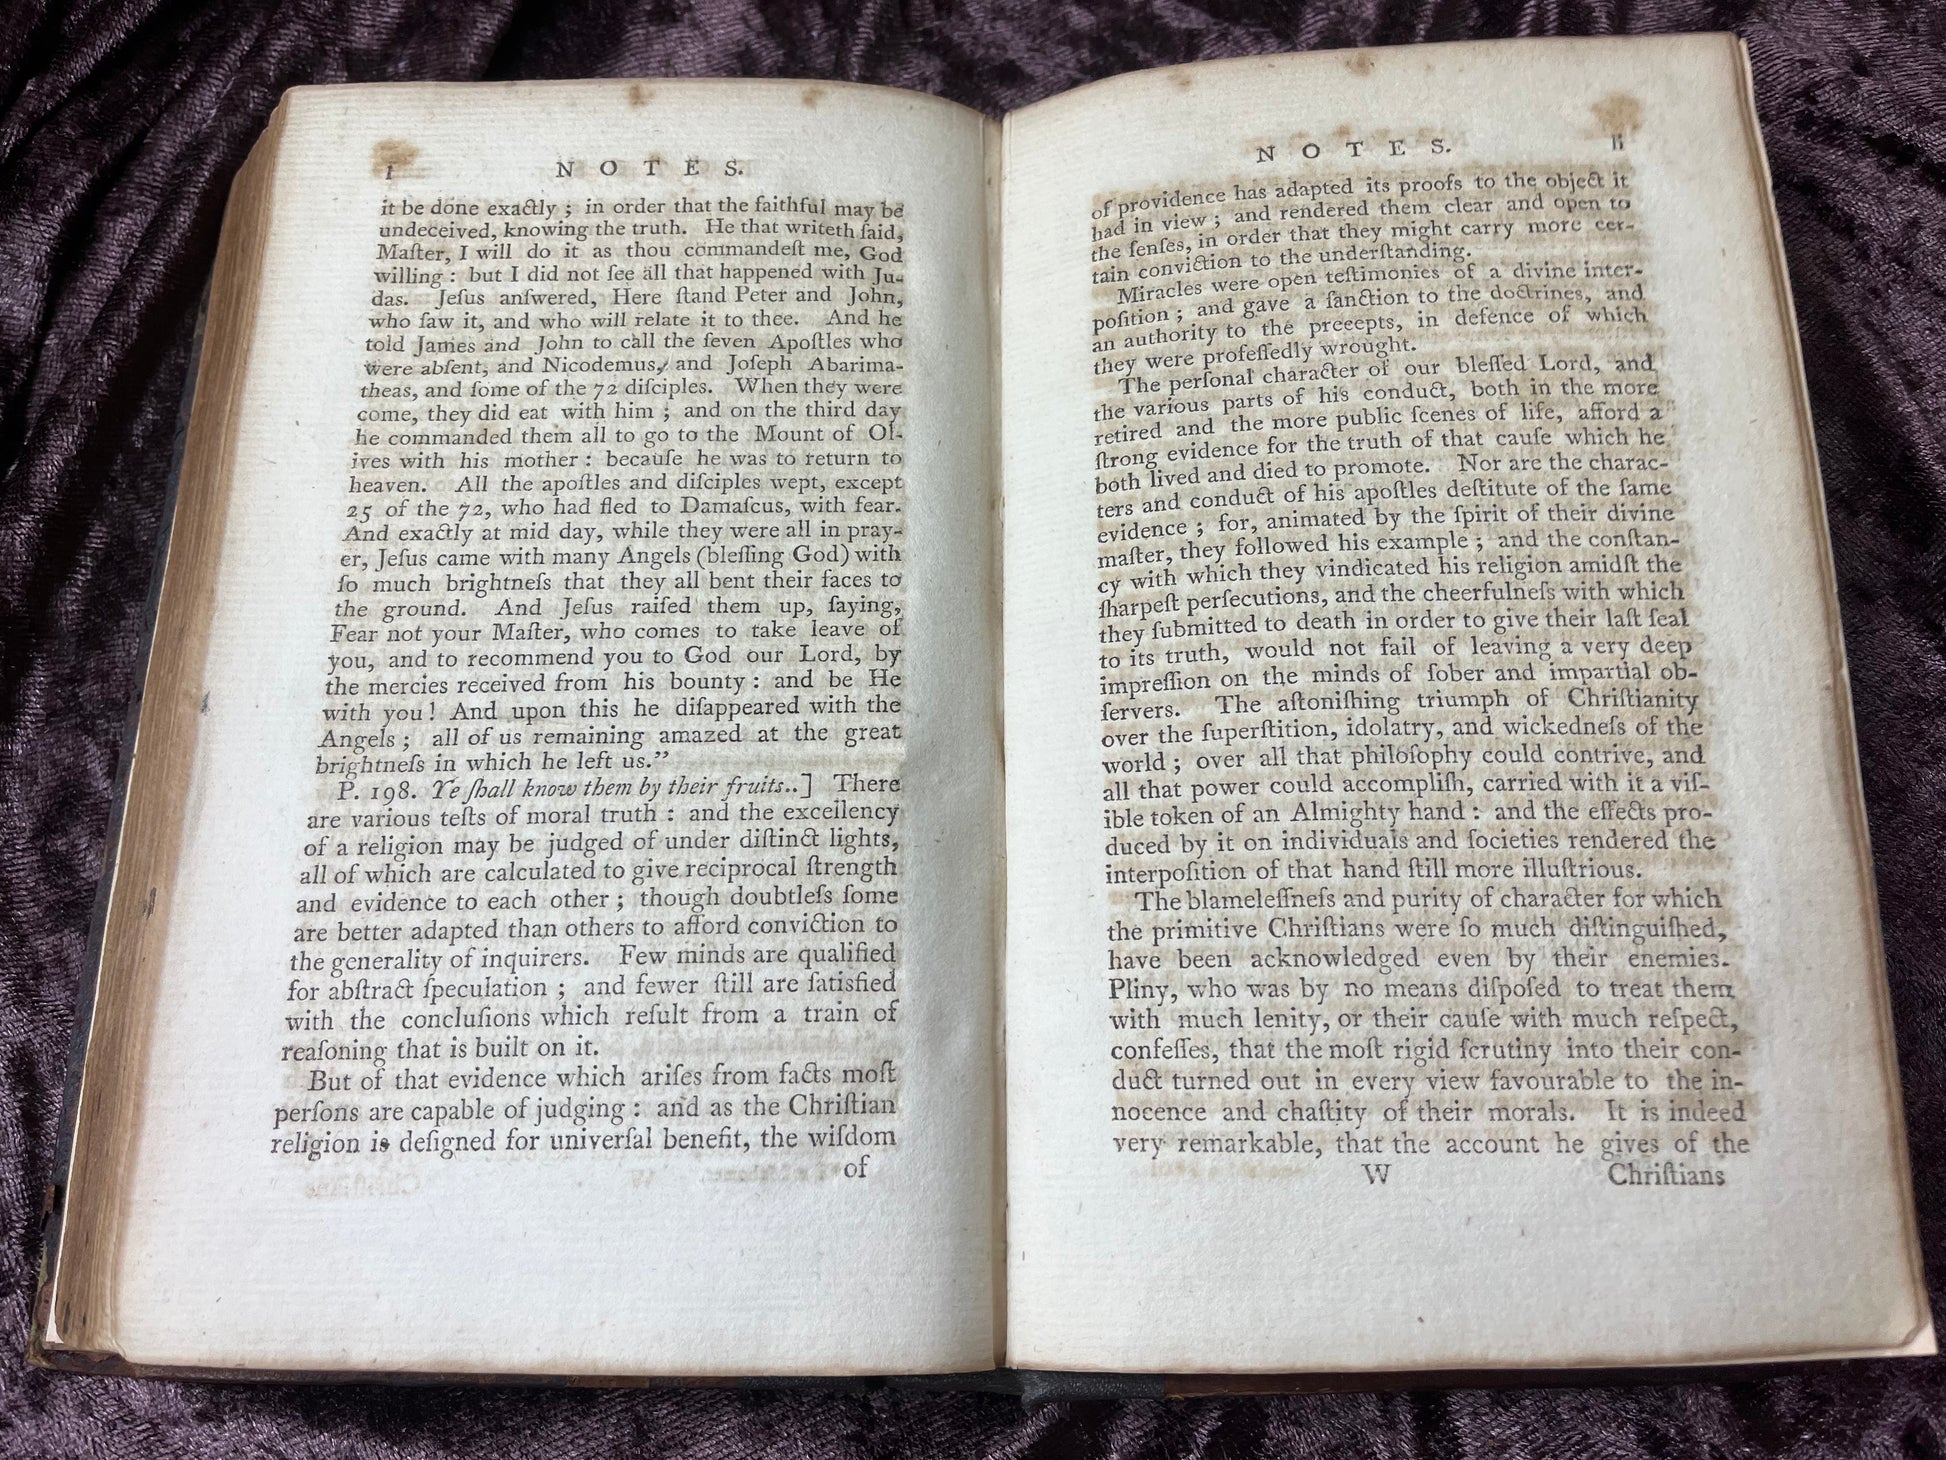 l
NOTES.
it be done exactly ; in order that the faithful may be
undeceived, knowing the truth. He that writeth ſaid,
Maſter, I will do it as thou commandeſt me, God
willing : but I did not ſee all that happened with Ju-
das. Jeſus anſwered, Here ſtand Peter and John,
who ſaw it, and who will relate it to thee. And he
told James and John to call the ſeven Apoſtles who
were abſent, and Nicodemus, and Joſeph Abarima-
theas, and ſome of the 72 diſciples. When they were
come, they did eat with him ; and on the third day
he commanded them all to go to the Mount of Ol-
ives with his mother : becauſe he was to return to
heaven. All the apoſtles and diſciples wept, except
25 of the 72, who had fled to Damaſcus, with fear.
And exactly at mid day, while they were all in pray-
er, Jeſus came with many Angels (bleſſing God) with
ſo much brightneſs that they all bent their faces to
the ground. And Jeſus raiſed them up, ſaying,
Fear not your Maſter, who comes to take leave of
you, and to recommend you to God our Lord, by
the mercies received from his bounty : and be He
with you! And upon this he diſappeared with the
Angels ; all of us remaining amazed at the great
brightneſs in which he left us.”
P. 198. Ye ſhall know them by their fruits..] There
are various teſts of moral truth : and the excellency
of a religion may be judged of under diſtinct lights,
all of which are calculated to give reciprocal ſtrength
and evidence to each other ; though doubtleſs ſome
are better adapted than others to afford conviction to
the generality of inquirers. Few minds are qualified
for abſtract ſpeculation ; and fewer ſtill are ſatisfied
with the concluſions which reſult from a train of
reaſoning that is built on it.
But of that evidence which ariſes from facts moſt
perſons are capable of judging : and as the Chriſtian
religion is deſigned for univerſal benefit, the wiſdom
of
NOTES.
li
of providence has adapted its proofs to the object it
had in view ; and rendered them clear and open to
the ſenſes, in order that they might carry more cer-
tain conviction to the underſtanding.
Miracles were open teſtimonies of a divine inter-
poſition ; and gave a ſanction to the doctrines, and
an authority to the precepts, in defence of which
they were profeſſedly wrought.
The perſonal character of our bleſſed Lord, and
the various parts of his conduct, both in the more
retired and the more public ſcenes of life, afford a
ſtrong evidence for the truth of that cauſe which he
both lived and died to promote. Nor are the charac-
ters and conduct of his apoſtles deſtitute of the ſame
evidence ; for, animated by the ſpirit of their divine
maſter, they followed his example ; and the conſtan-
cy with which they vindicated his religion amidſt the
ſharpeſt perſecutions, and the cheerfulneſs with which
they ſubmitted to death in order to give their laſt ſeal
to its truth, would not fail of leaving a very deep
impreſſion on the minds of ſober and impartial ob-
ſervers. The aſtoniſhing triumph of Chriſtianity
over the ſuperſtition, idolatry, and wickedneſs of the
world ; over all that philoſophy could contrive, and
all that power could accompliſh, carried with it a viſ-
ible token of an Almighty hand : and the effects pro-
duced by it on individuals and ſocieties rendered the
interpoſition of that hand ſtill more illuſtrious.
The blameleſſneſs and purity of character for which
the primitive Chriſtians were ſo much diſtinguiſhed,
have been acknowledged even by their enemies.
Pliny, who was by no means diſpoſed to treat them
with much lenity, or their cauſe with much reſpect,
confeſſes, that the moſt rigid ſcrutiny into their con-
duct turned out in every view favourable to the in-
nocence and chaſtity of their morals. It is indeed
very remarkable, that the account he gives of the
W
Chriſtians